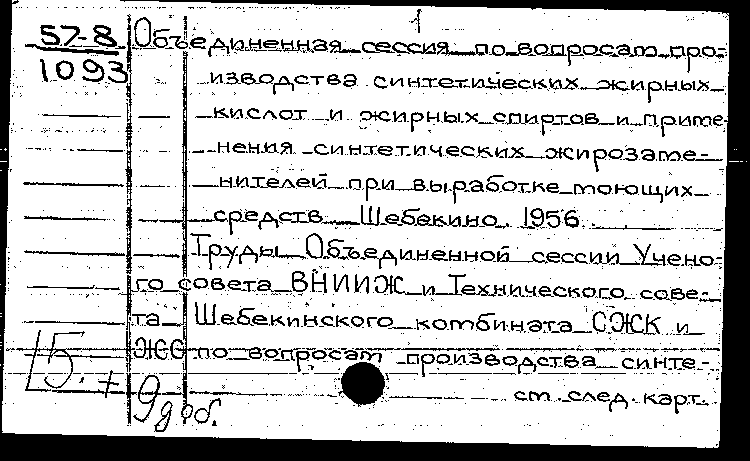 1
57-8 Объединенная сессия по вопросам про-
1093 изводства синтетических жирных
кислот и жирных спиртов и приме
нения синтетических жирозаме-
нителей при выработке моющих
средств Шебекино 1956
Труды Объединенной сессии Учено-
го совета ВНИИЖ и Технического сове-
та Шебекинского комбината СЖК и
ЖСС по вопросам производства синте-
15. + 9 доб. см. след. карт.